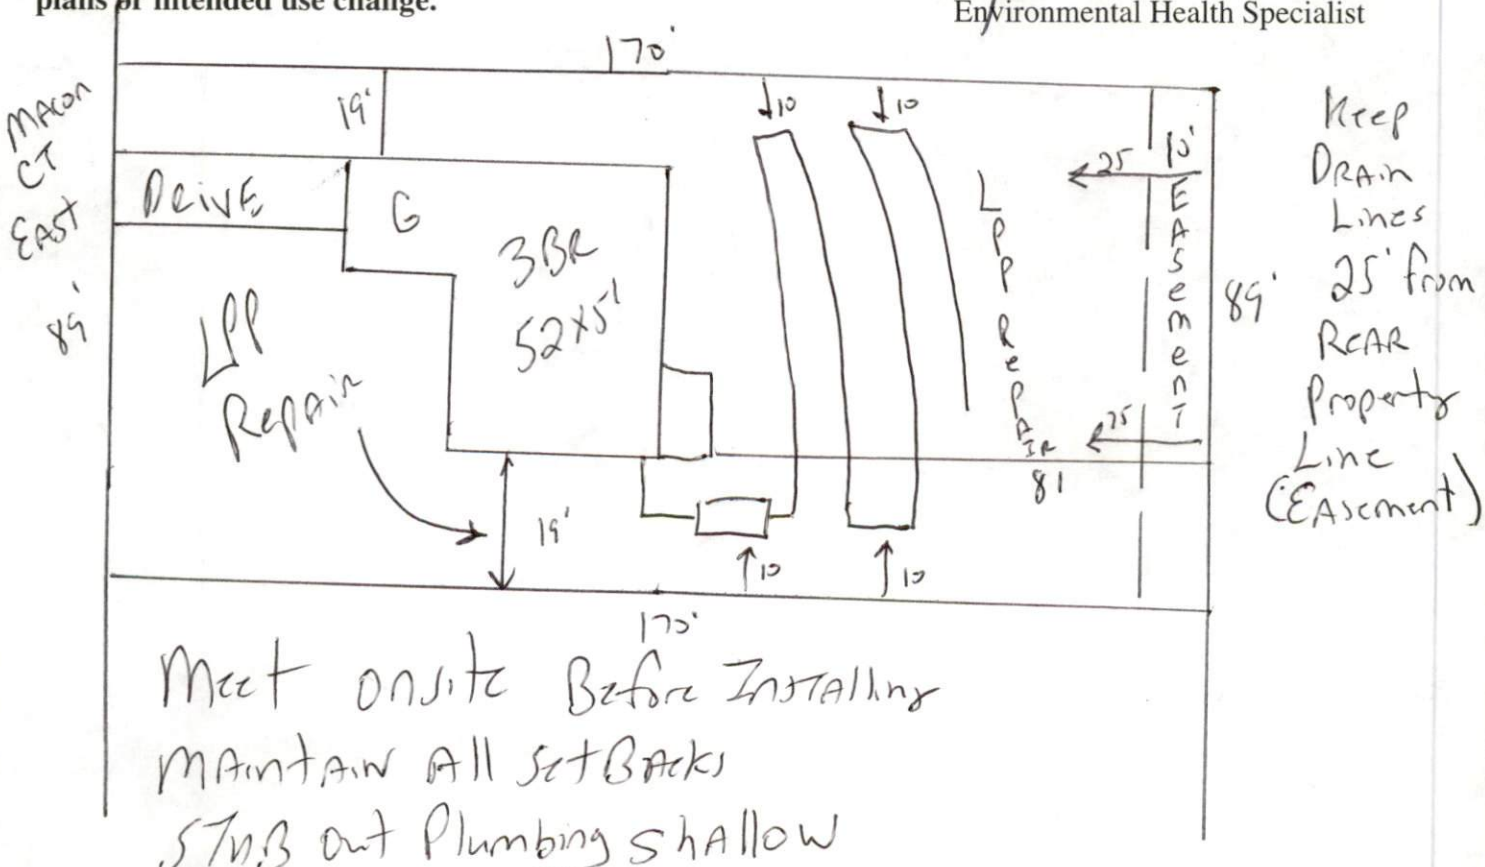 plans or intended use change.
Environmental Health Specialist
170'
MACON
CT
EAST
89'
19'
↓10
↓10
DRIVE
G
3BR
52x51
LPP
Repair
LPP RePAIR
25
10'
EASemenT
25
89'
81
19'
↑10
↑10
170'
Keep
DRAin
Lines
25' from
REAR
Property
Line
(EAsement)
Meet onsite Before InsTAlling
MAintAin All SetBAcks
STuB out Plumbing ShAllow